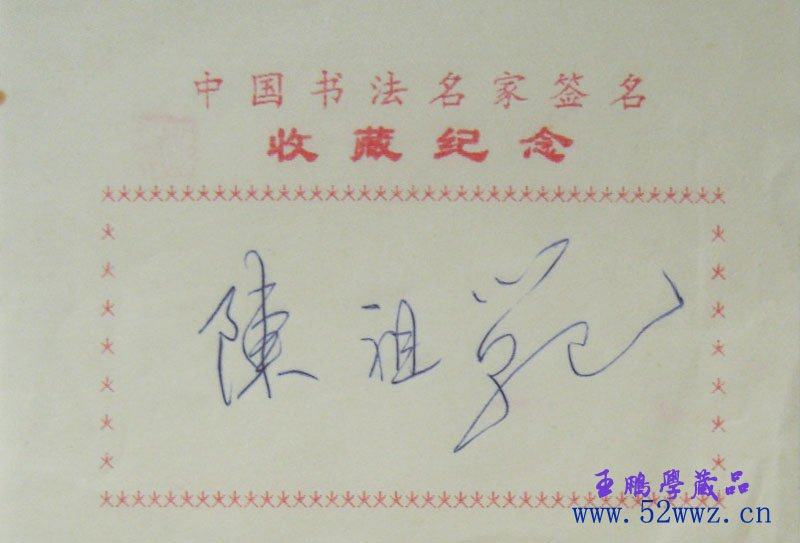 中国书法名家签名
收藏纪念
陳祖範
王鹏學蔵品
www.52wwz.cn